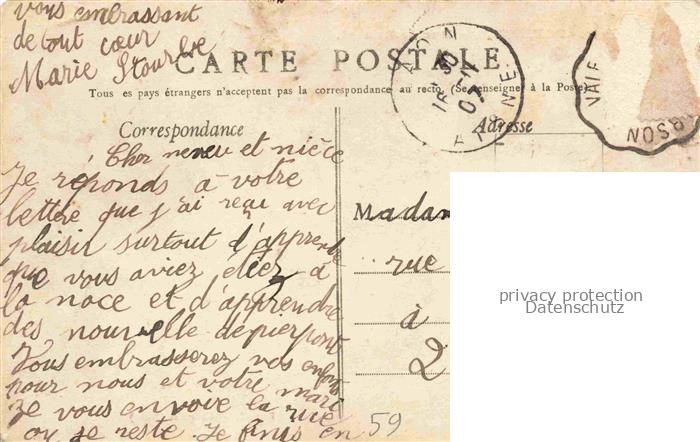 vous embrassant
de tout cœur
Marie Stourbe
CARTE POSTALE
Tous es pays étrangers n'acceptent pas la correspondance au recto. (Se renseigner à la Poste)
Correspondance
Adresse
Cher neveu et nièce
Je réponds à votre
lettre que j'ai reçu avec
plaisir surtout d'apprendre
que vous aviez étiez à
la noce et d'apprendre
des nouvelle de pierpont
Vous embrasserez vos enfants
pour nous et votre mari
Je vous envoie la rue
ou je reste. Je finis en
Madam
rue
à
L
59
AISNE
07
privacy protection
Datenschutz